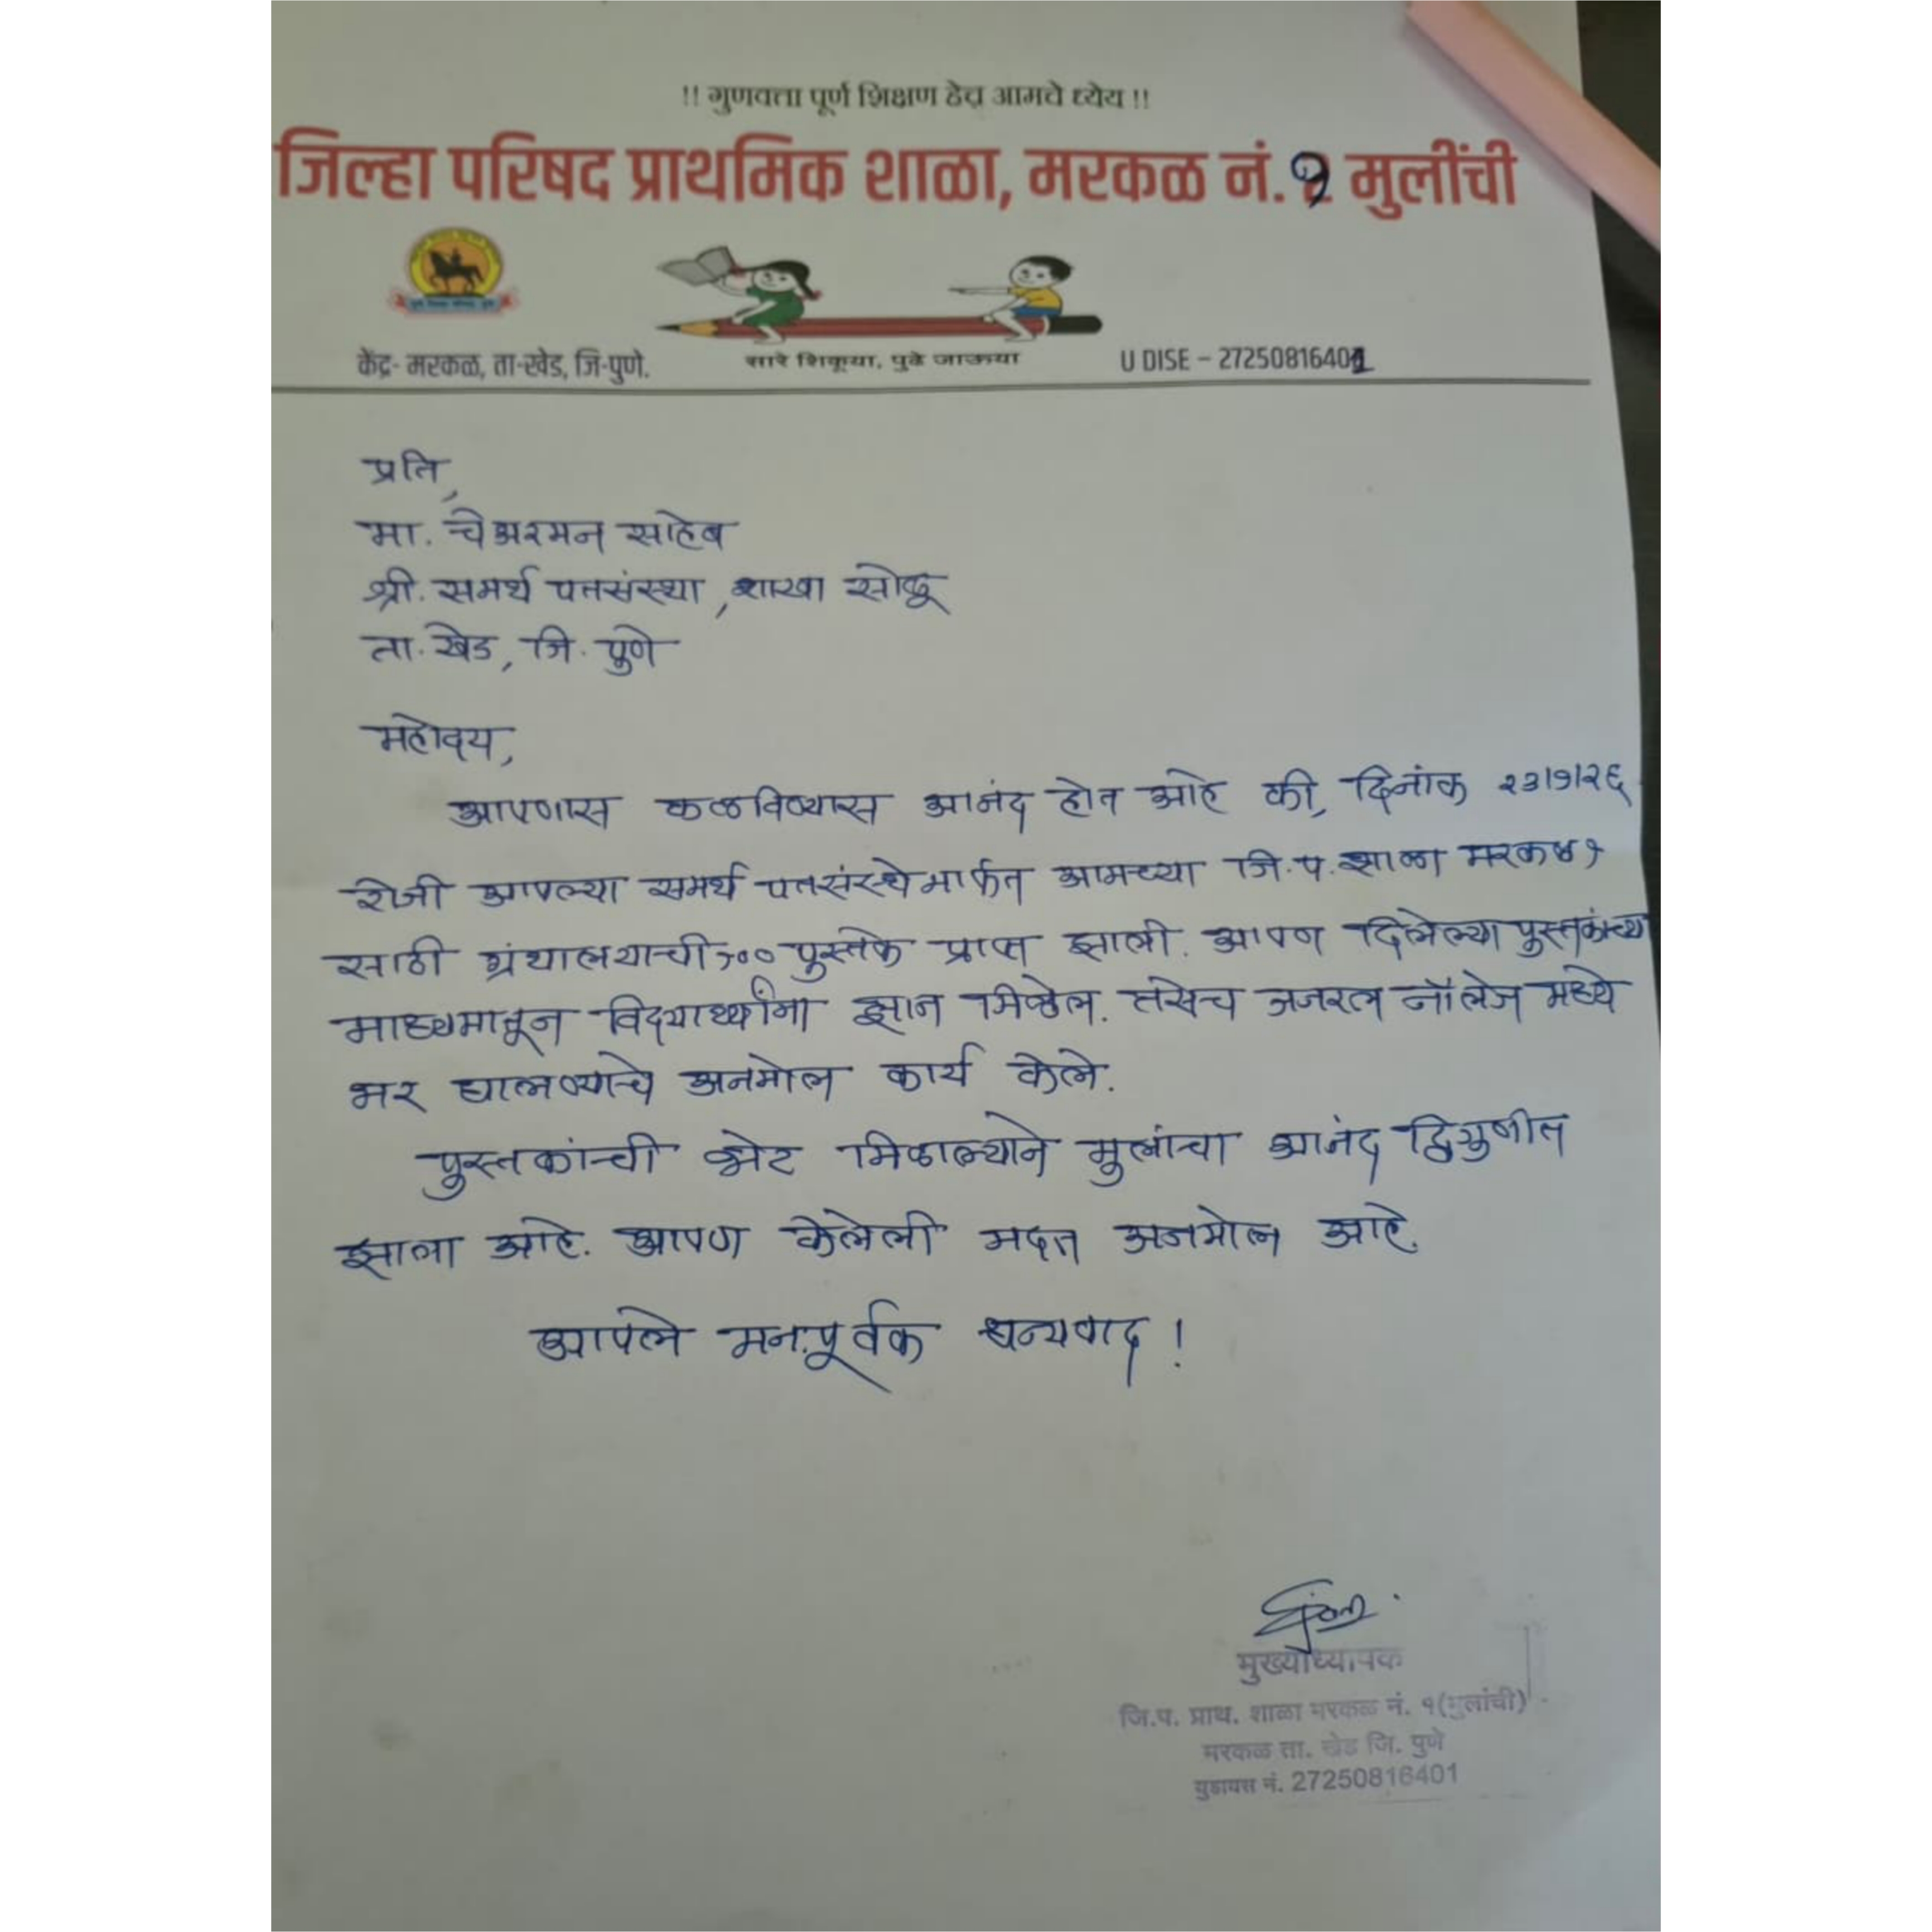 !! गुणवत्ता पूर्ण शिक्षण हेच आमचे ध्येय !!
जिल्हा परिषद प्राथमिक शाळा, मरकळ नं. १ मुलींची
केंद्र- मरकळ, ता-खेड, जि-पुणे.
सारे शिकूया, पुढे जाऊया
U DISE – 27250816401
प्रति,
मा. चेअरमन साहेब
श्री. समर्थ पतसंस्था, शाखा सोळू
ता. खेड, जि. पुणे
महोदय,
आपणास कळविण्यास आनंद होत आहे की, दिनांक २३/१/२६
रोजी आपल्या समर्थ पतसंस्थेमार्फत आमच्या जि.प. शाळा मरकळ १
साठी ग्रंथालयाची १०० पुस्तके प्राप्त झाली. आपण दिलेल्या पुस्तकांच्या
माध्यमातून विद्यार्थ्यांना ज्ञान मिळेल. तसेच जनरल नॉलेज मध्ये
भर घालण्याचे अनमोल कार्य केले.
पुस्तकांची भेट मिळाल्याने मुलांचा आनंद द्विगुणीत
झाला आहे. आपण केलेली मदत अनमोल आहे.
आपले मनःपूर्वक धन्यवाद !
मुख्याध्यापक
जि.प. प्राथ. शाळा मरकळ नं. १(मुलांची)
मरकळ ता. खेड जि. पुणे
युडायस नं. 27250816401